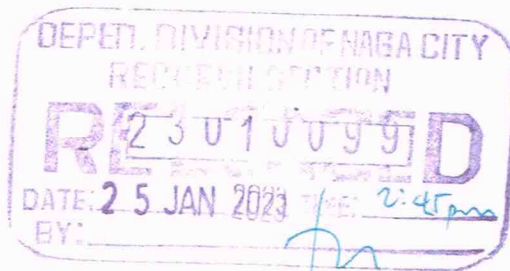 DEPED. DIVISION OF NAGA CITY
RECORDS SECTION
23010099
DATE: 25 JAN 2023 TIME: 2:45 pm
BY: